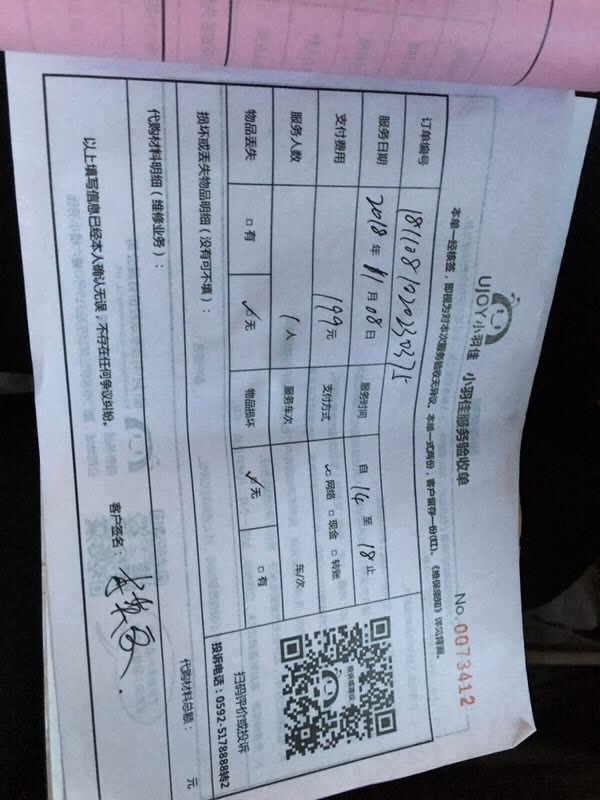 UJOY小羽佳 小羽佳服务验收单
No.0073412
本单一经核签，即视为对本次服务验收无异议。本单一式两份，客户留存一份(红)。《维保须知》详见背面。
订单编号
服务日期 2018 年 11 月 08 日 服务时间 自 14 至 18 止
支付费用 199 元 支付方式 ☑ 网络 □ 现金 □ 转账
服务人数 1 人 服务车次 车/次
物品丢失 □ 有 ☑ 无 物品损坏 ☑ 无 □ 有
投诉或建议
扫码评价或投诉
投诉电话：0592-5178888转2
损坏或丢失物品明细（没有可不填）：
代购材料明细（维修业务）：
代购材料总额： 元
以上填写信息已经本人确认无误，不存在任何争议纠纷。
客户签名：